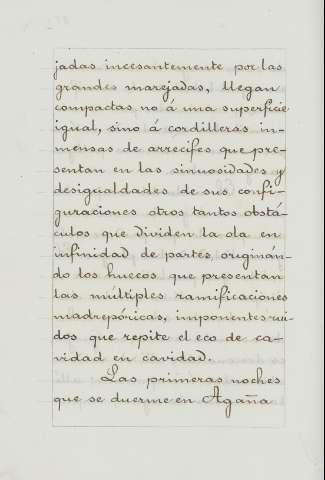 jadas incesantemente por las
grandes marejadas, llegan
compactas no á una superficie
igual, sino á cordilleras in-
mensas de arrecifes que pre-
sentan en las sinuosidades y
desigualdades de sus confi-
guraciones otros tantos obstá-
culos que dividen la ola en
infinidad de partes, originán-
do los huecos que presentan
las múltiples ramificaciones
madrepóricas, imponentes rui-
dos que repite el eco de ca-
vidad en cavidad.
Las primeras noches
que se duerme en Agaña